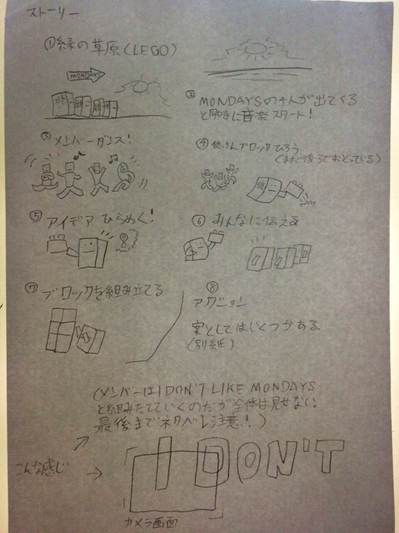 ストーリー
①緑の草原(LEGO)
MONDAY
②MONDAYSの4人が出てくると同時に音楽スタート!
③メンバーダンス!
④悠さんブロックひろう
(まだ後ろでおどっている)
⑤アイデアひらめく!
⑥みんなに伝える
⑦ブロックを組み立てる
⑧
アクション
案としてはいくつかある
(別紙)
(メンバーはI DON'T LIKE MONDAYS
と組みたてていくのだが全体は見せない。
最後までネタバレ注意!)
こんな感じ
I DON'T
カメラ画面